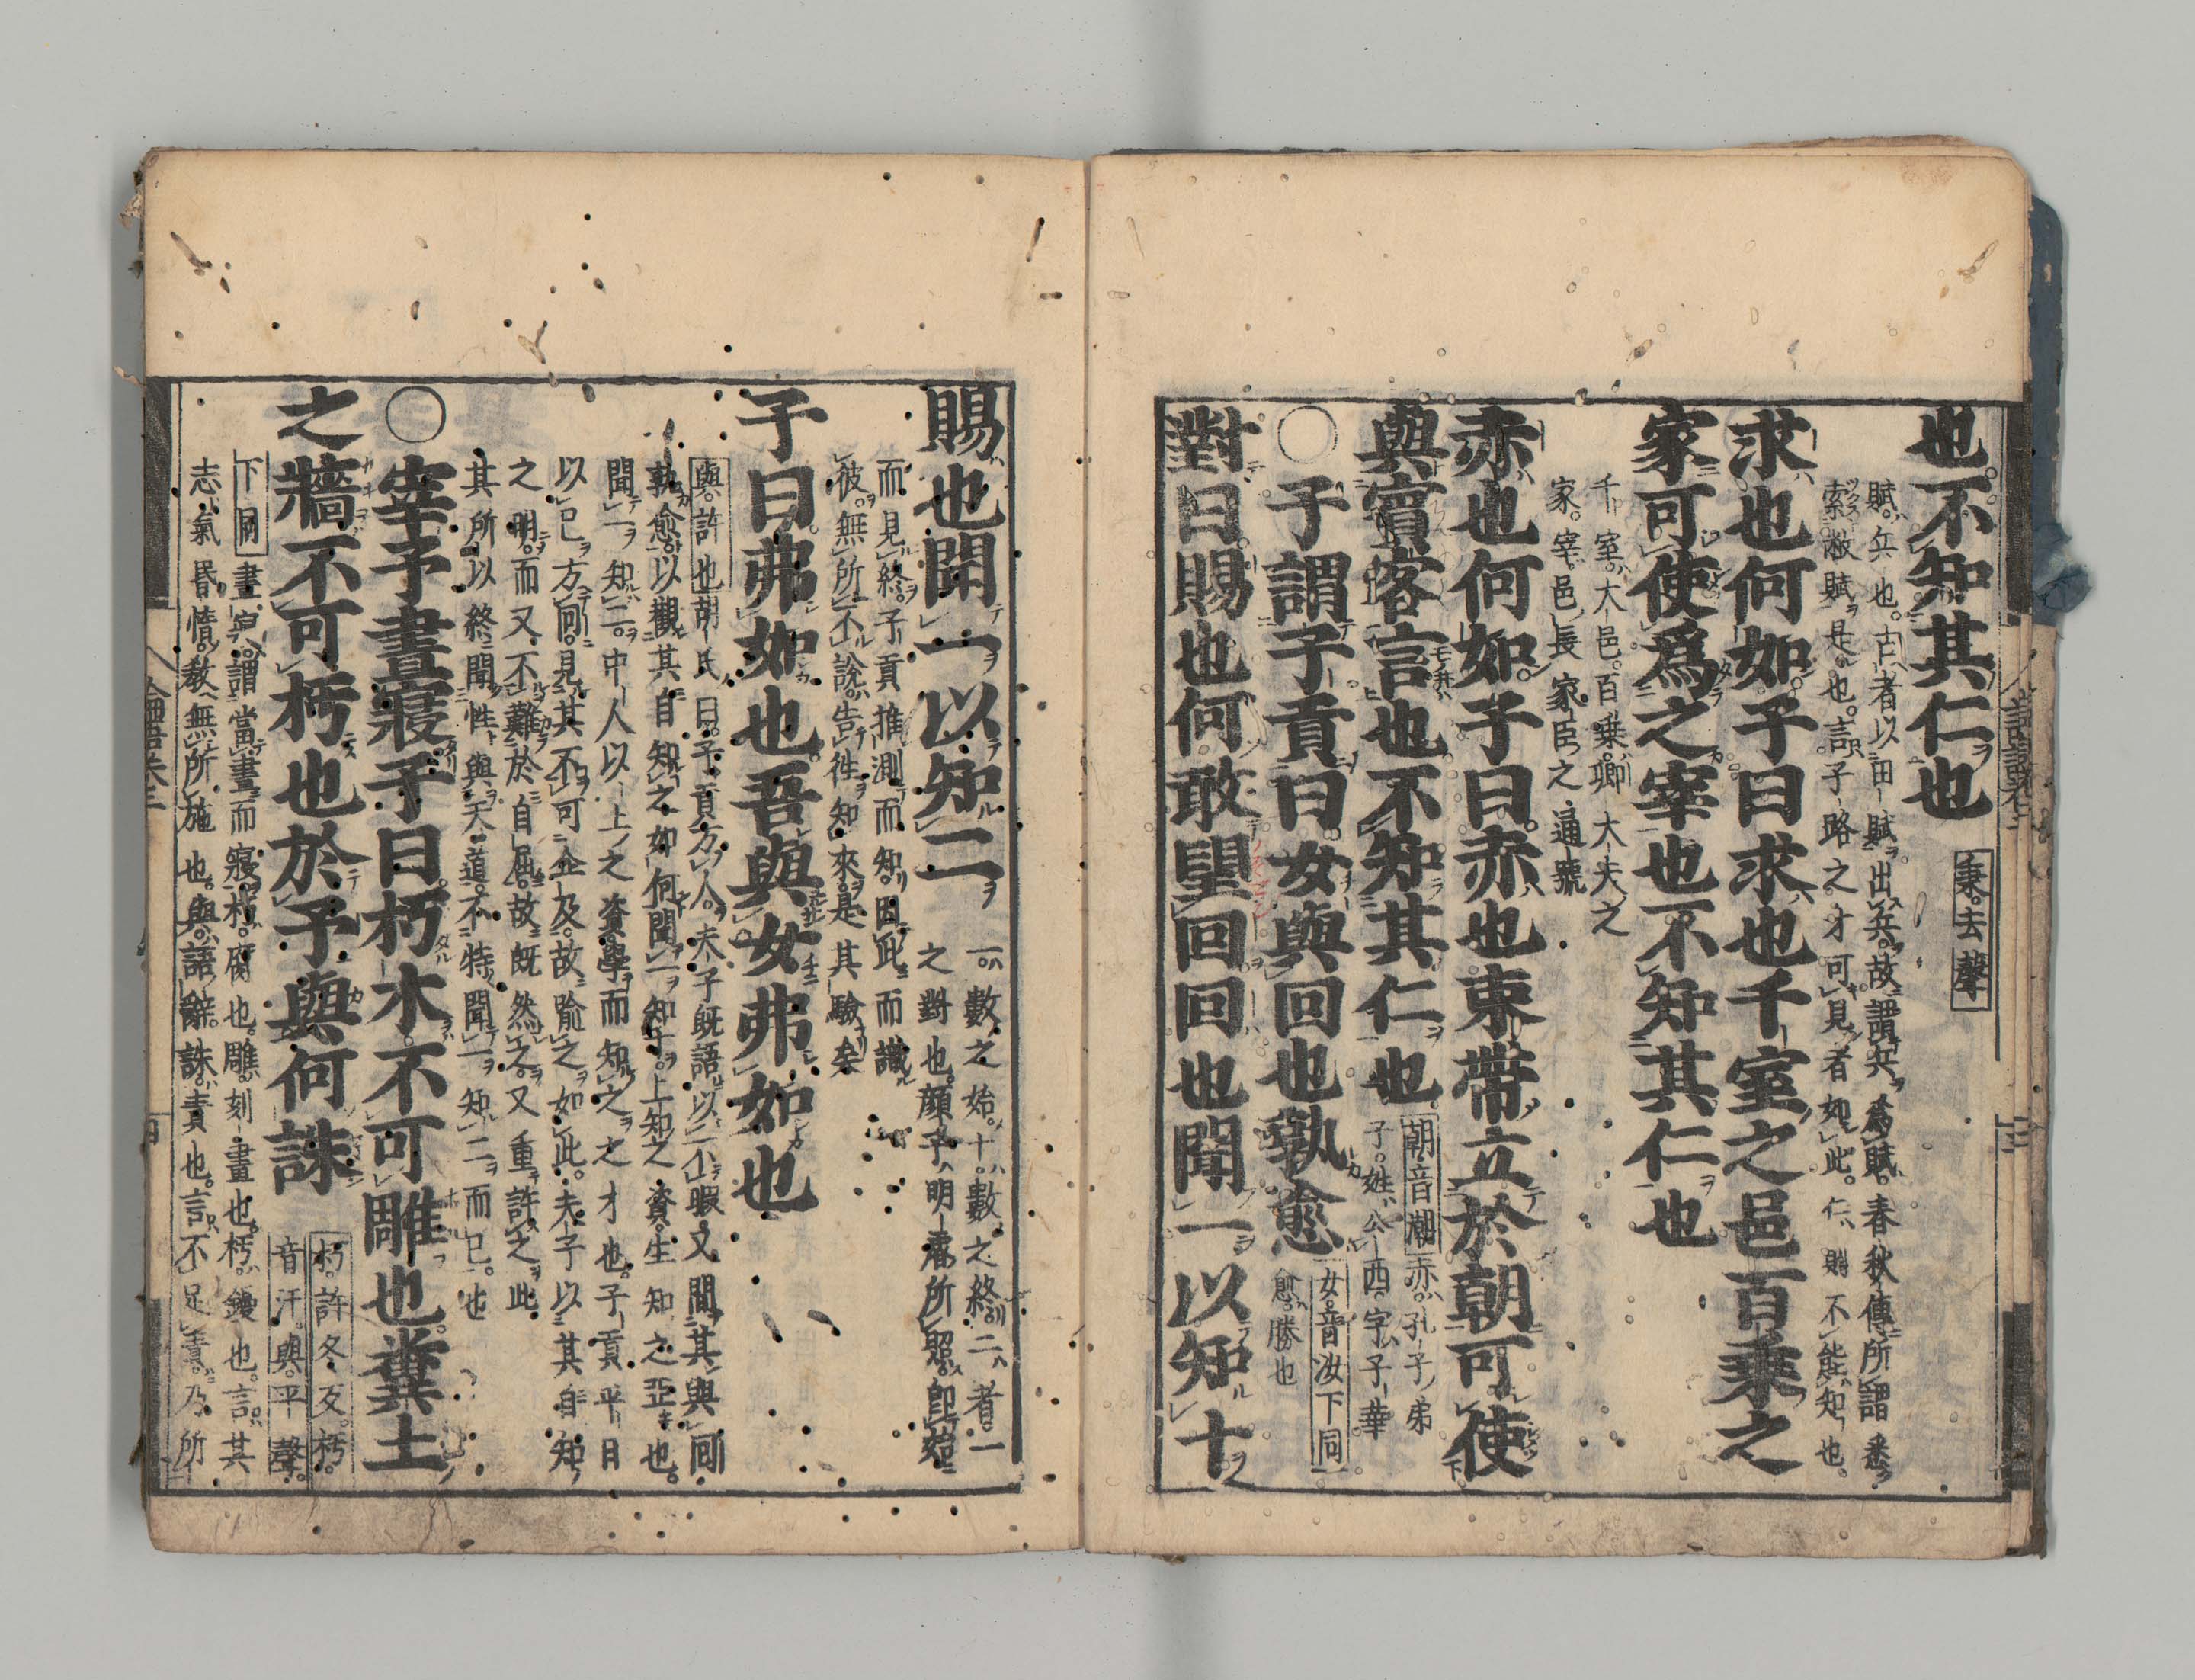 也不知其仁也
乘去聲
賦兵也古者以田賦出兵故謂兵爲賦春秋傳所謂悉
索敝賦是也言子路之才可見者如此仁則不能知也
求也何如子曰求也千室之邑百乘之
家可使爲之宰也不知其仁也
千室大邑百乘卿大夫之
家宰邑長家臣之通號
赤也何如子曰赤也束帶立於朝可使
與賓客言也不知其仁也
朝音潮赤孔子弟
子姓公西字子華
○子謂子貢曰女與回也孰愈
女音汝下同
愈勝也
對曰賜也何敢望回回也聞一以知十
賜也聞一以知二
一數之始十數之終二者一
之對也顔子明睿所照即始
而見終子貢推測而知因此而識
彼無所不說告徃知來是其驗矣
子曰弗如也吾與女弗如也
與許也胡氏曰子貢方人夫子既語以不暇又問其與回
孰愈以觀其自知之如何聞一知十上知之資生知之亞也
聞一知二中人以上之資學而知之之才也子貢平日
以已方回見其不可企及故喩之如此夫子以其自知
之明而又不難於自屈故既然之又重許之此
其所以終聞性與天道不特聞一知二而已也
○宰予晝寢子曰朽木不可雕也糞土
之牆不可杇也於予與何誅
朽許久反杇
音汙與平聲
下同晝寢謂當晝而寢朽腐也雕刻畫也杇鏝也言其
志氣昏惰敎無所施也與語辭誅責也言不足責乃所
論語卷三